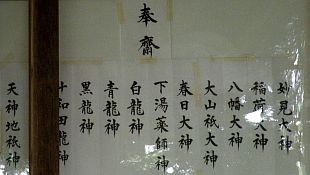 奉齋
妙見大神
稲荷大神
八幡大神
大山祇大神
春日大神
下湯薬師神
白龍神
青龍神
黒龍神
十和田龍神
天神地祇神